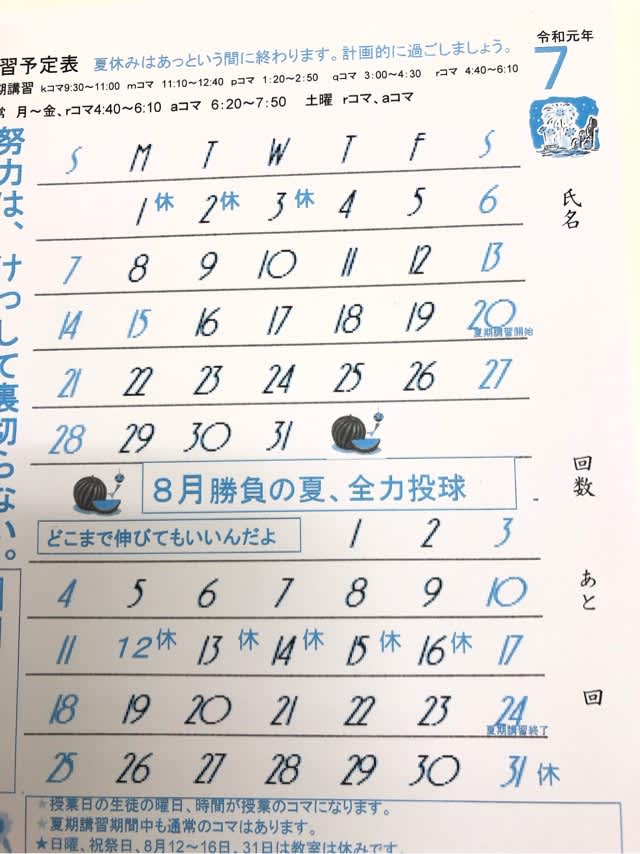 習予定表 夏休みはあっという間に終わります。計画的に過ごしましょう。
令和元年
7
期講習 kコマ9:30～11:00 mコマ 11:10～12:40 pコマ 1:20～2:50 qコマ 3:00～4:30 rコマ 4:40～6:10
常 月～金、rコマ4:40～6:10 aコマ 6:20～7:50 土曜 rコマ、aコマ
努力は、けっして裏切らない。
S M T W T F S
1休 2休 3休 4 5 6
7 8 9 10 11 12 13
14 15 16 17 18 19 20
夏期講習開始
21 22 23 24 25 26 27
28 29 30 31
8月勝負の夏、全力投球
どこまで伸びてもいいんだよ 1 2 3
4 5 6 7 8 9 10
11 12休 13休 14休 15休 16休 17
18 19 20 21 22 23 24
夏期講習終了
25 26 27 28 29 30 31休
氏名
回数
あと
回
★授業日の生徒の曜日、時間が授業のコマになります。
★夏期講習期間中も通常のコマはあります。
★日曜、祝祭日、8月12～16日、31日は教室は休みです。